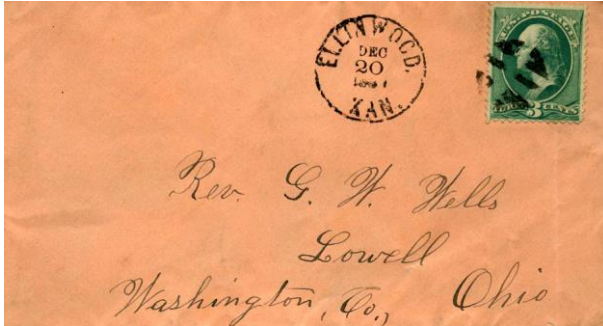 ELLINWOOD.
DEC
20
KAN.
U.S. POSTAGE
3 CENTS
Rev. G. W. Wells
Lowell
Washington, Co., Ohio